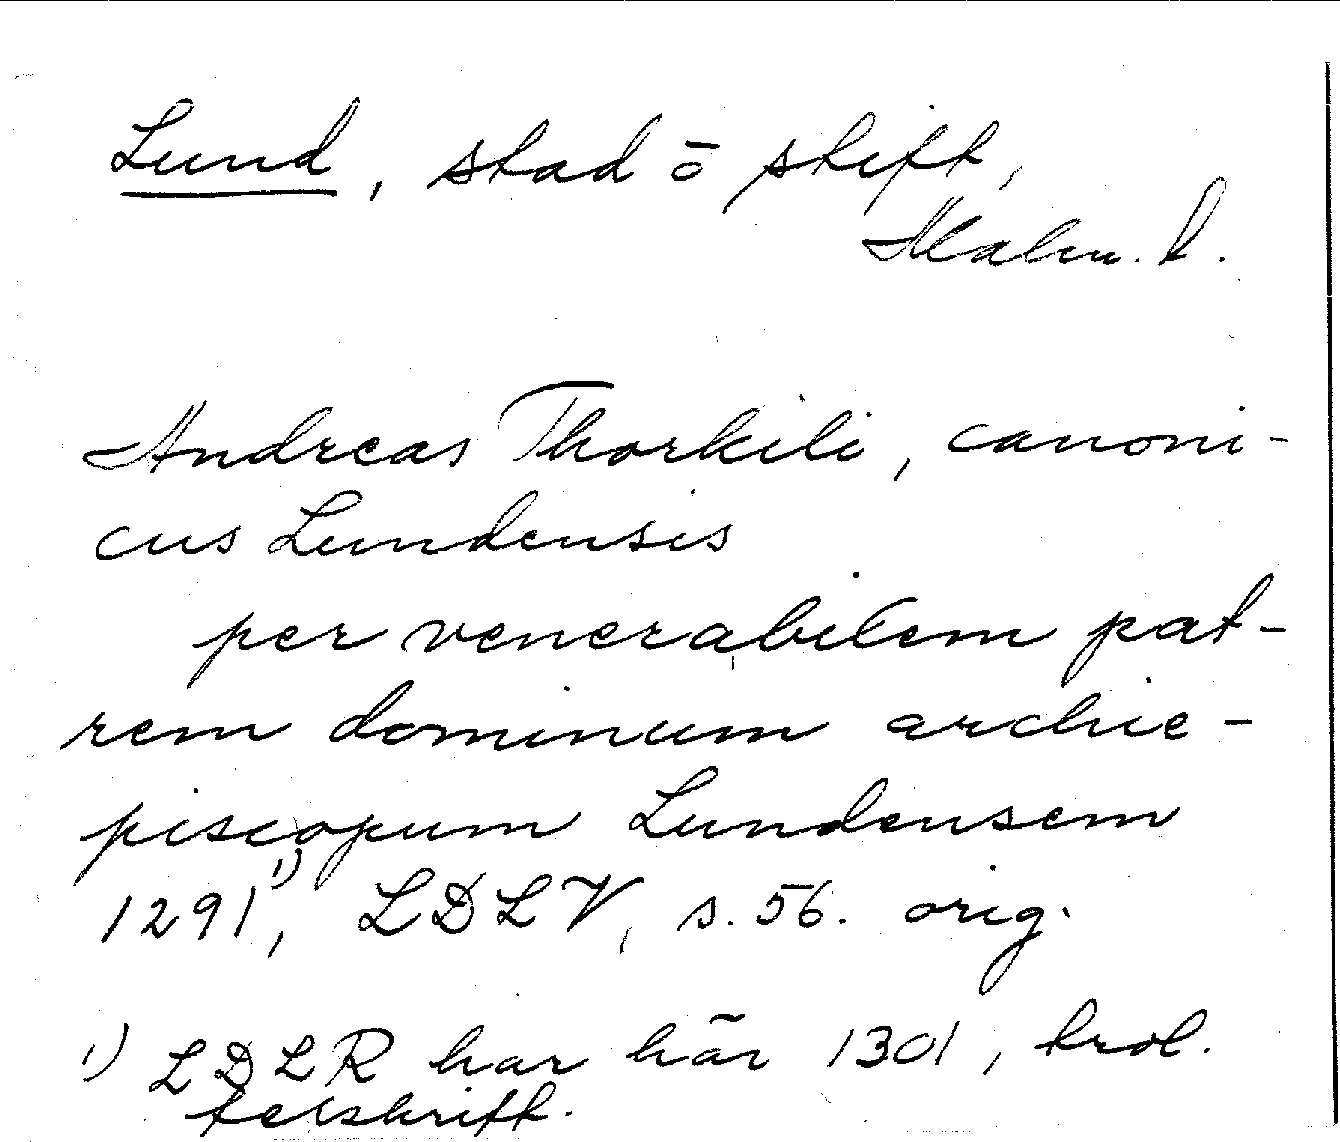 Lund, stad o stift,
Malm. l.
Andreas Thorkili, canoni-
cus Lundensis
per venerabilem pat-
rem dominum archie-
piscopum Lundensem
1291¹⁾, LDLV, s. 56. orig.
1) LDLR har här 1301, trol.
felskrift.